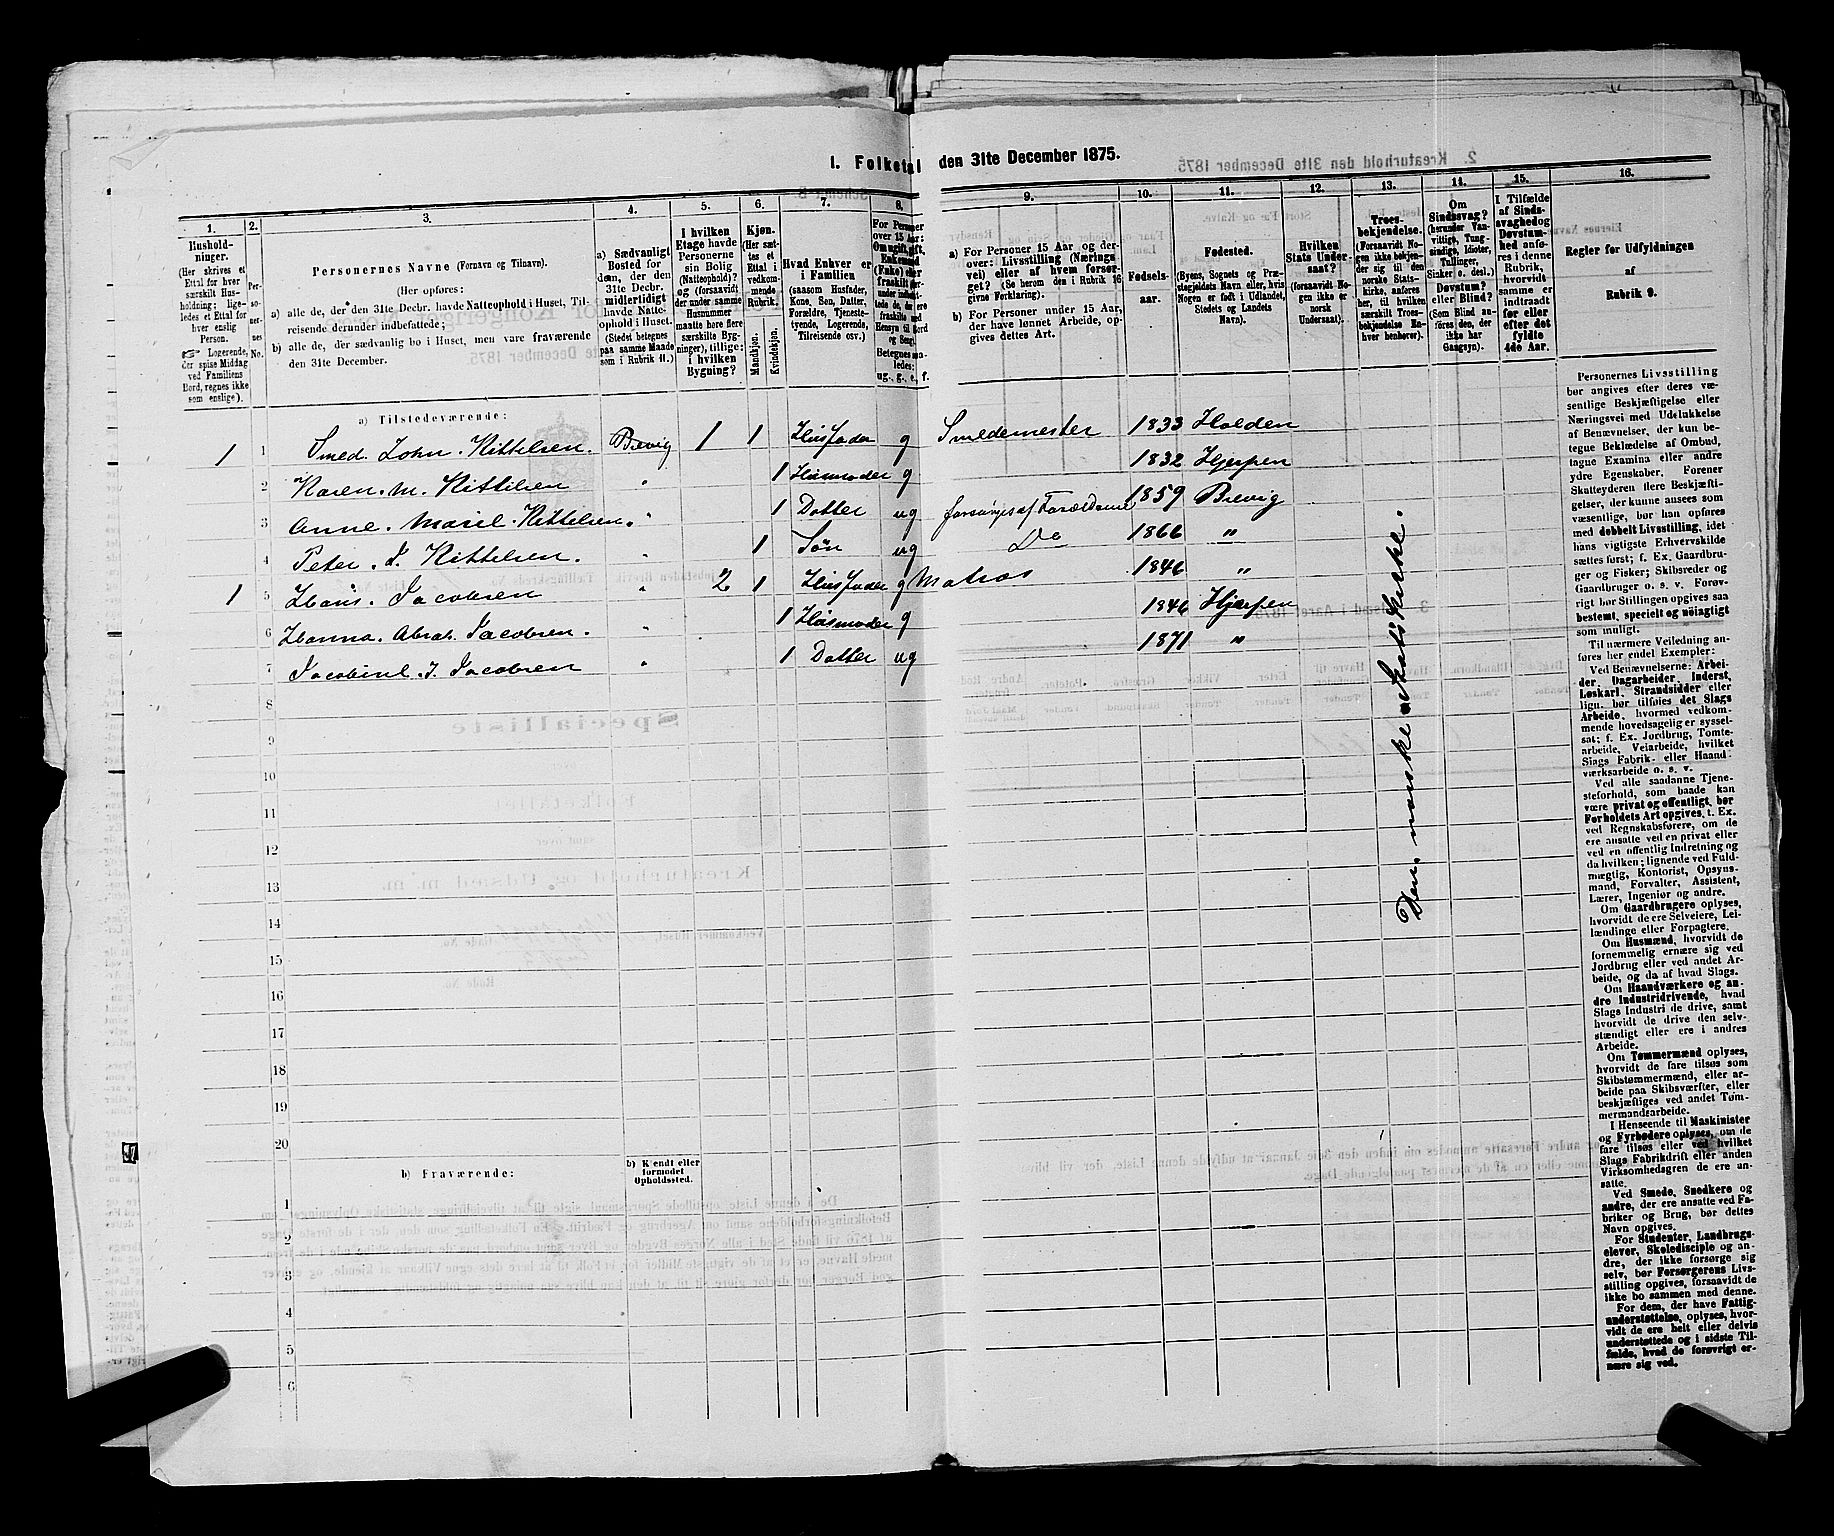 1. Folketal den 31te December 1875.
1.
Hushold-
ninger.
(Her skrives et
Ettal for hver
særskilt Hus-
holdning; lige-
ledes et Ettal for
hver enslig
Person.
Logerende,
der spise Middag
ved Familiens
Bord, regnes ikke
som enslige).
2.
Per-
so-
ner-
nes
No.
3.
Personernes Navne (Fornavn og Tilnavn).
(Her opføres:
a) alle de, der den 31te Decbr. havde Natteophold i Huset, Til-
reisende derunder indbefattede;
b) alle de, der sædvanlig bo i Huset, men vare fraværende
den 31te December.
4.
a) Sædvanligt
Bosted for
dem, der den
31te Decbr.
midlertidigt
havde Natte-
ophold i Huset.
(Stedet betegnes
paa samme Maade
som i Rubrik 11.)
5.
I hvilken
Etage havde
Personerne
sin Bolig
(Natteophold)?
og (forsaavidt
der under samme
Husnummer
maatte høre flere
særskilte Byg-
ninger), tillige:
i hvilken
Bygning?
6.
Kjøn.
(Her sæt-
tes et
Ettal i
vedkom-
mende
Rubrik.
Mandkjøn.
Kvindekjøn.
7.
Hvad Enhver er
i Familien
(saasom Husfader,
Kone, Søn, Datter,
Forældre, Tjeneste-
tyende, Logerende,
Tilreisende osv.)
8.
For Personer
over 15 Aar:
Om ugift, gift,
Enkemand
(Enke) eller
fraskilt
Betegnes saa-
ledes:
ug., g., e., f.
9.
a) For Personer 15 Aar og der-
over: Livsstilling (Nærings-
vei) eller af hvem forsør-
get? (Se herom den i Rubrik 16
givne Forklaring).
b) For Personer under 15 Aar,
der have lønnet Arbeide, op-
gives dettes Art.
10.
Fødsels-
aar.
11.
Fødested.
(Byens, Sognets og Præ-
stegjeldets Navn eller, hvis
Nogen er født i Udlandet,
Stedets og Landets
Navn).
12.
Hvilken
Stats Under-
saat?
(forsaavidt No-
gen ikke er
norsk
Undersaat).
13.
Troes-
bekjendelse.
(Forsaavidt No-
gen ikke bekjen-
der sig til den
norske Stats-
kirke, anføres
her, til hvilken
særskilt Troes-
bekjendelse En-
hver henhører).
14.
Om
Sindssvag?
(herunder Van-
vittige, Tung-
sindige, Idioter,
Tullinger,
Sinker o. desl.)
Døvstum?
eller Blind?
(Som Blind an-
føres den, der
ikke har
Gangsyn).
15.
I Tilfælde
af Sinds-
svaghed og
Døvstum-
hed anfø-
res i denne
Rubrik,
hvorvidt
samme er
indtraadt
før eller
efter det
fyldte
4de Aar.
16.
Regler for Udfyldningen
af
Rubrik 9.
a) Tilstedeværende:
1 1 Smed. John. Kittelsen. Brevig 1 1 Husfader g Smedemester 1833 Holden
2 Karen. M. Kittelsen " 1 Husmoder g 1832 Hjerpen
3 Anne. Marie. Kittelsen. " 1 Datter ug forsørges af Forældrene 1859 Brevig
4 Peter. J. Kittelsen. " 1 Søn ug Do 1866 "
1 5 Hans. Jacobsen " 2 1 Husfader g Matros 1846 "
6 Hanna. Abrah. Jacobsen. " 1 Husmoder g 1846 Hjerpen
7 Jacobine. J. Jacobsen " 1 Datter ug 1871 "
8
9
10
11
12
13
14
15
16
17
18
19
20
Den norske Statskirke.
b) Fraværende:
b) Kjendt eller
formodet
Opholdssted.
1
2
3
4
5
6
Personernes Livsstilling
bør angives efter deres væ-
sentlige Beskjæftigelse eller
Næringsvei med Udelukkelse
af Benævnelser, der kun be-
tegne Beklædelse af Ombud,
tagne Examina eller andre
ydre Egenskaber. Forener
Skatteyderen flere Beskjæfti-
gelser, der kunne ansees som
væsentlige, bør han opføres
med dobbelt Livsstilling, idet
hans vigtigste Erhvervskilde
sættes først; f. Ex. Gaardbru-
ger og Fisker; Skibsreder og
Gaardbruger o. s. v. Forøv-
rigt bør Stillingen opgives saa
bestemt, specielt og nøiagtigt
som muligt.
Til nærmere Veiledning an-
føres her endel Exempler:
Ved Benævnelserne: Arbei-
der, Dagarbeider, Inderst,
Løskarl, Strandsidder eller
lign. bør tilføies det Slags
Arbeide, hvormed vedkom-
mende hovedsagelig er syssel-
sat; f. Ex. Jordbrug, Tomte-
arbeide, Veiarbeide, hvilket
Slags Fabrik- eller Haand-
værksarbeide o. s. v.
Ved alle saadanne Tjene-
steforhold, som baade kan
være privat og offentligt, bør
Forholdets Art opgives, t. Ex.
ved Regnskabsførere, om de
ere ansatte ved en privat eller
ved en offentlig Indretning og
da hvilken; lignende ved Fuld-
mægtig, Kontorist, Opsyns-
mand, Forvalter, Assistent,
Lærer, Ingeniør og andre.
Om Gaardbrugere oplyses,
hvorvidt de ere Selveiere, Lei-
lændinge eller Forpagtere.
Om Husmænd, hvorvidt de
fornemmelig ernære sig ved
Jordbrug eller ved andet Ar-
beide, og da af hvad Slags.
Om Haandværkere og an-
dre Industridrivende, hvad
Slags Industri de drive, samt
hvorvidt de drive den selv-
stændigt eller ere i andres
Arbeide.
Om Tømmermænd oplyses,
hvorvidt de fare tilsøs som
Skibstømmermænd, eller ar-
beide paa Skibsværfter, eller
beskjæftiges ved andet Tøm-
mermandsarbeide.
I Henseende til Maskinister
og Fyrbødere oplyses, om de
fare tilsøs eller ved hvilket
Slags Fabrikdrift eller anden
Virksomhedsgren de ere an-
satte.
Ved Smede, Snedkere og
andre, der ere ansatte ved Fa-
briker og Brug, bør dettes
Navn opgives.
For Studenter, Landbrugs-
elever, Skoledisciple og an-
dre, der ikke forsørge sig
selv, bør Forsørgerens Livs-
stilling opgives, forsaavidt de
ikke bo sammen med denne.
For dem, der have Fattig-
understøttelse, oplyses, hvor-
vidt de ere helt eller delvis
understøttede og i sidste Til-
fælde, hvad de forøvrigt er-
nære sig ved.